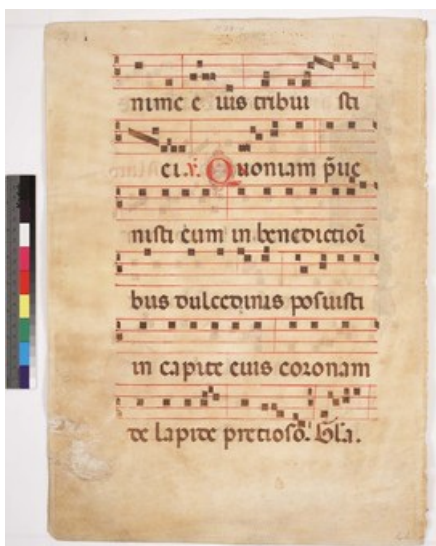 nime e ius tribui sti
ei. ℣. Quoniam p̄ue
nisti eum in benedictioī
bus dulcedinis posuisti
in capite eius coronam
de lapide pretioso. Gl̄a.